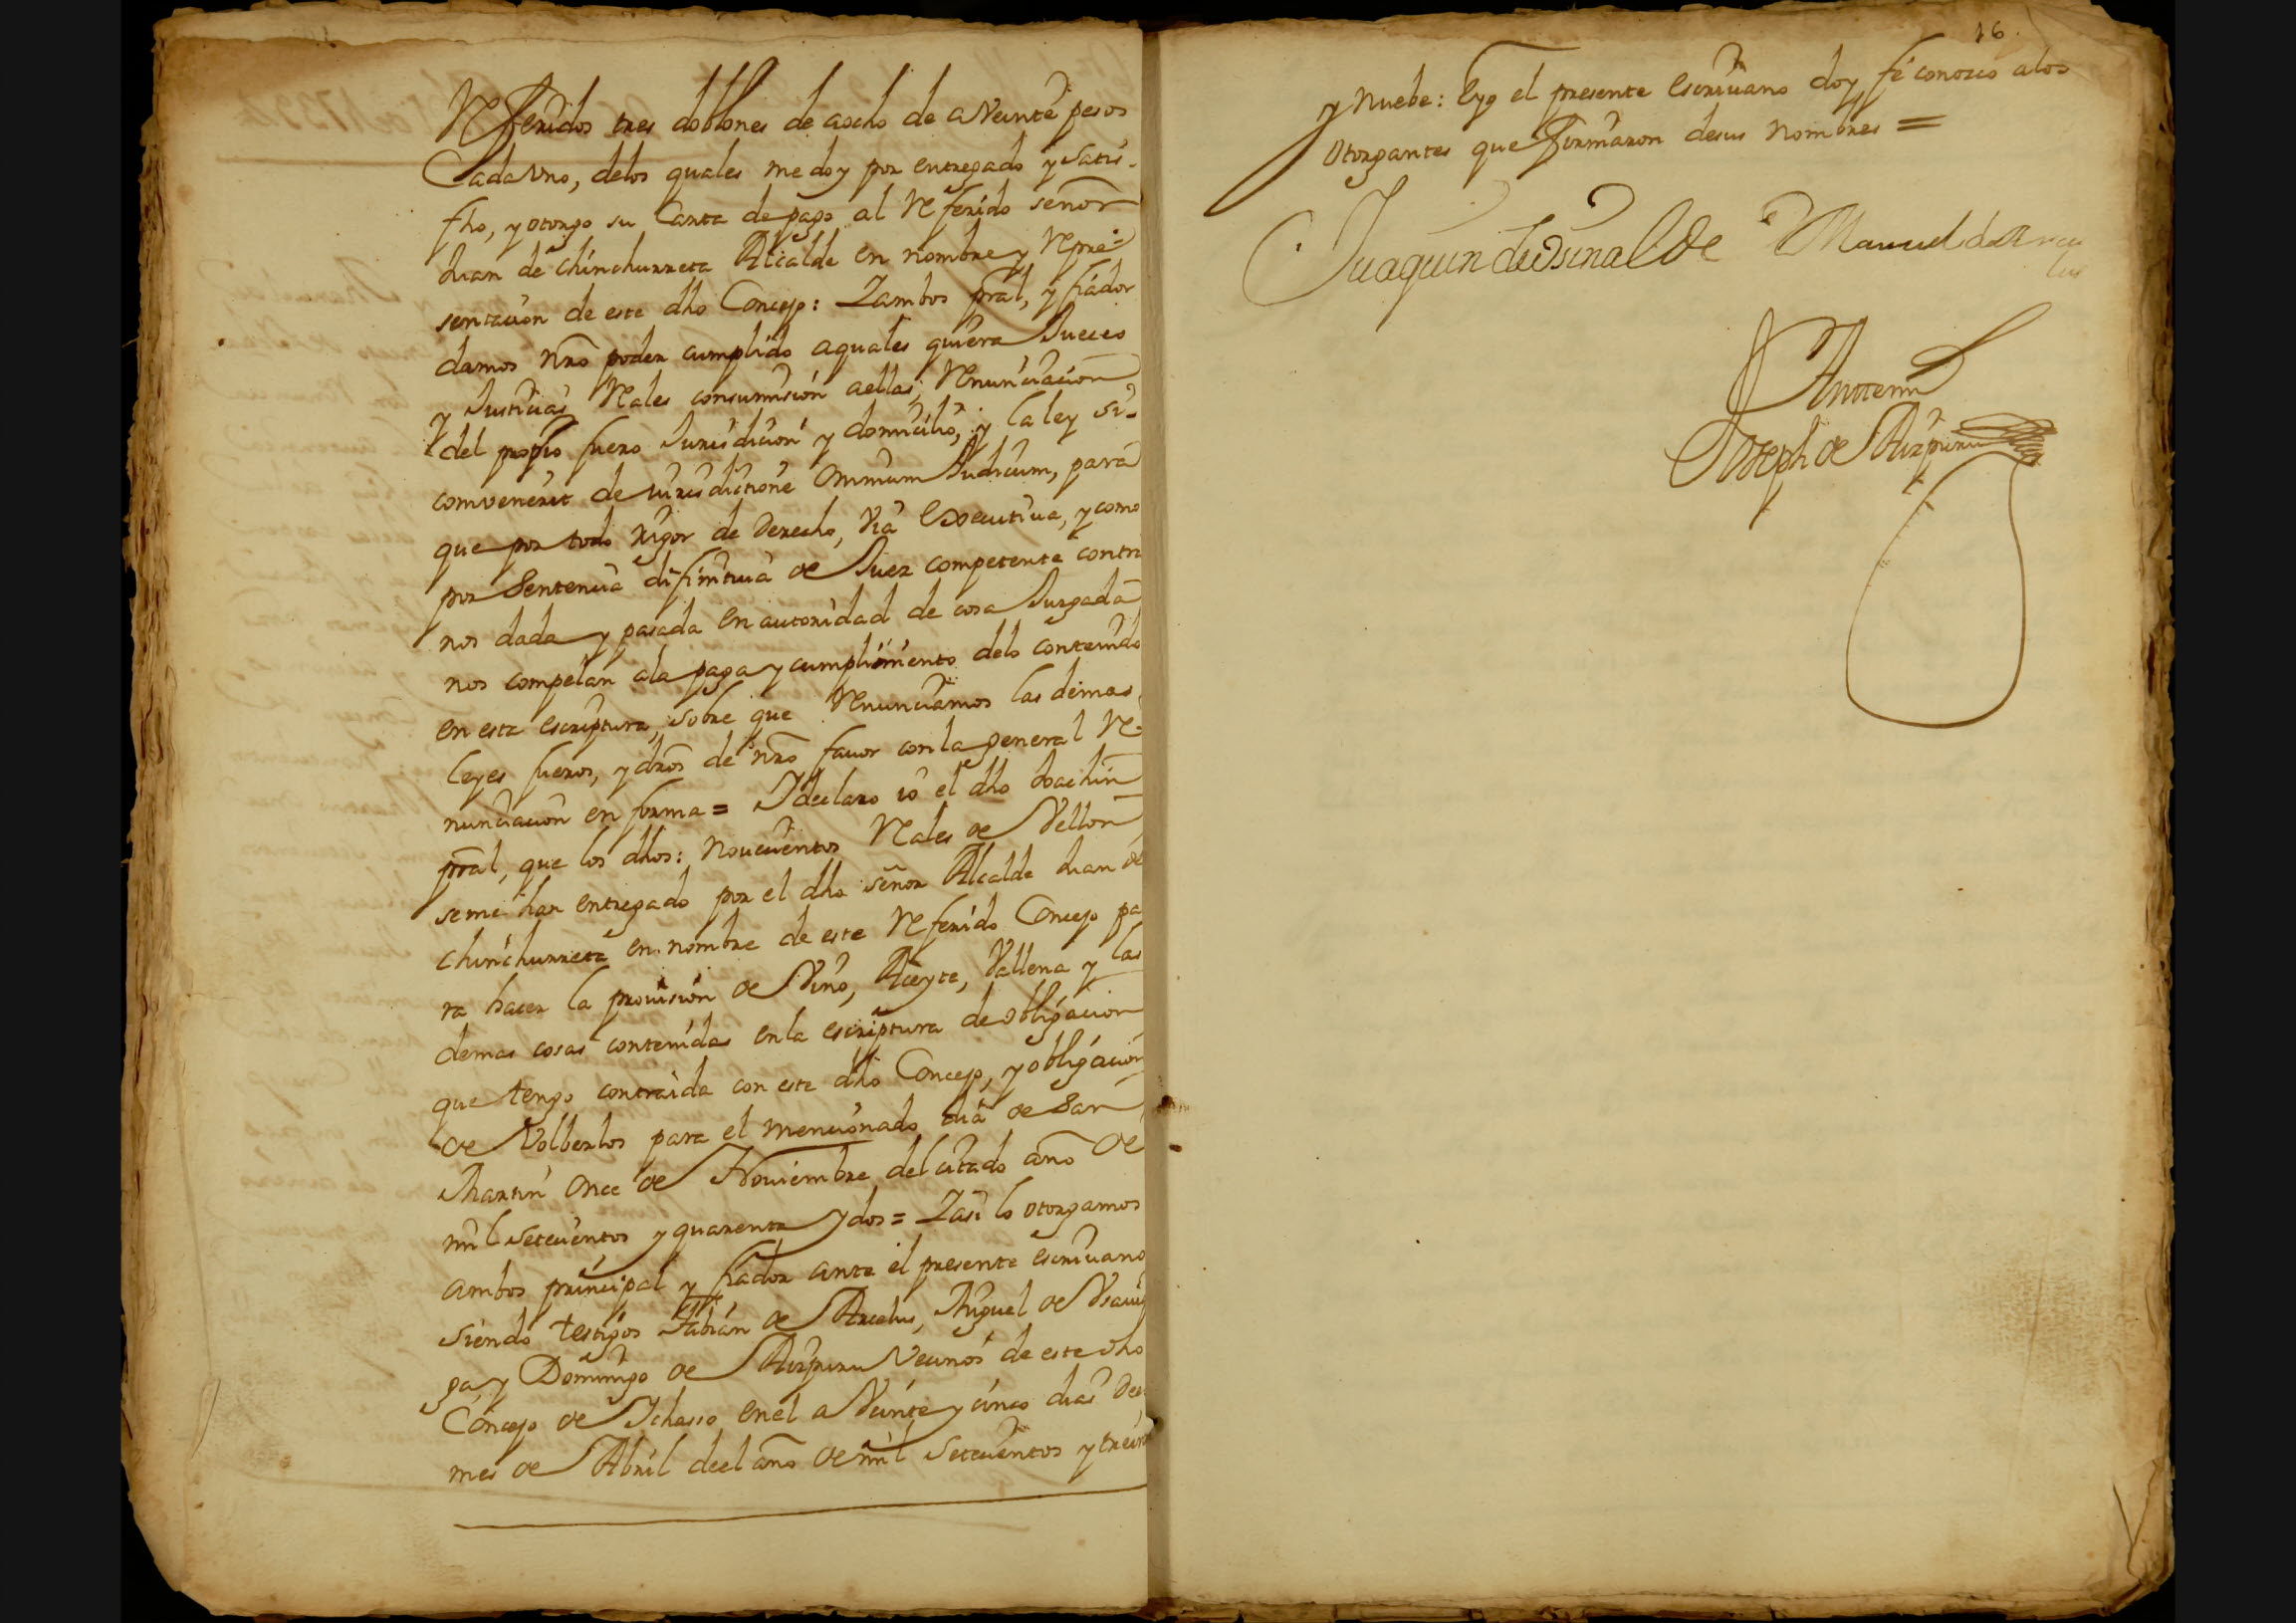 Referidos tres doblones de aocho de aVeinte pesos
Cada Vno, delos quales me doy por entregado y satis-
fho, y otorgo su Carta de pago al Referido señor
Juan de chinchurreta Alcalde en nombre y Repre-
sentacion de este dho Concejo: Y ambos pral, y fiador
damos nro poder cumplido aquales quiera Jueces
y Justicias Reales consumision aellas, Renunciacion
del propio fuero Jurisdicion y domicilio, y la ley si-
convenerit de iurisdictione Omnium Judicum, para
que por todo rigor de derecho, Via Executiua, y como
por Sentencia difinitiua de Juez competente contra
nos dada y pasada en autoridad de cosa Juzgada
nos compelan ala paga y cumplimiento delo contenido
en esta escriptura, sobre que Renunciamos las demas
leyes fueros, y dros de nro fauor con la general Re-
nunciacion en forma = I declaro io el dho Joachin
pral, que los dhos: Nouecientos Reales de Vellon
seme han entregado por el dho señor Alcalde Juan de
chinchurreta en nombre de este Referido Concejo pa
ra hacer la prouision de Vino, Aceyte, Vallena y las
demas cosas contenidas en la escriptura de obligacion
que tengo contraida con este dho Concejo, y obligacion
de Volberlos para el mencionado dia de San
Martin Once de Nouiembre del citado año de
mil setecientos y quarenta y dos = Y asi lo otorgamos
ambos principal y fiador ante el presente escriuano
siendo testigos Fabian de Arcelus, Miguel de Vsaui
ga, y Domingo de Aizpuru Vecinos de este dho
Concejo de Ichasso, en el a Veinte y cinco dias del
mes de Abril deel año de mil Setecientos y treinta
16.
y nuebe: E yo el presente escriuano doy fé conozco alos
Otorgantes que firmaron desus nombres =
Juaquin de Vsinalde Manuel de Arce
lus
Antemi
Joseph de Aizpuru